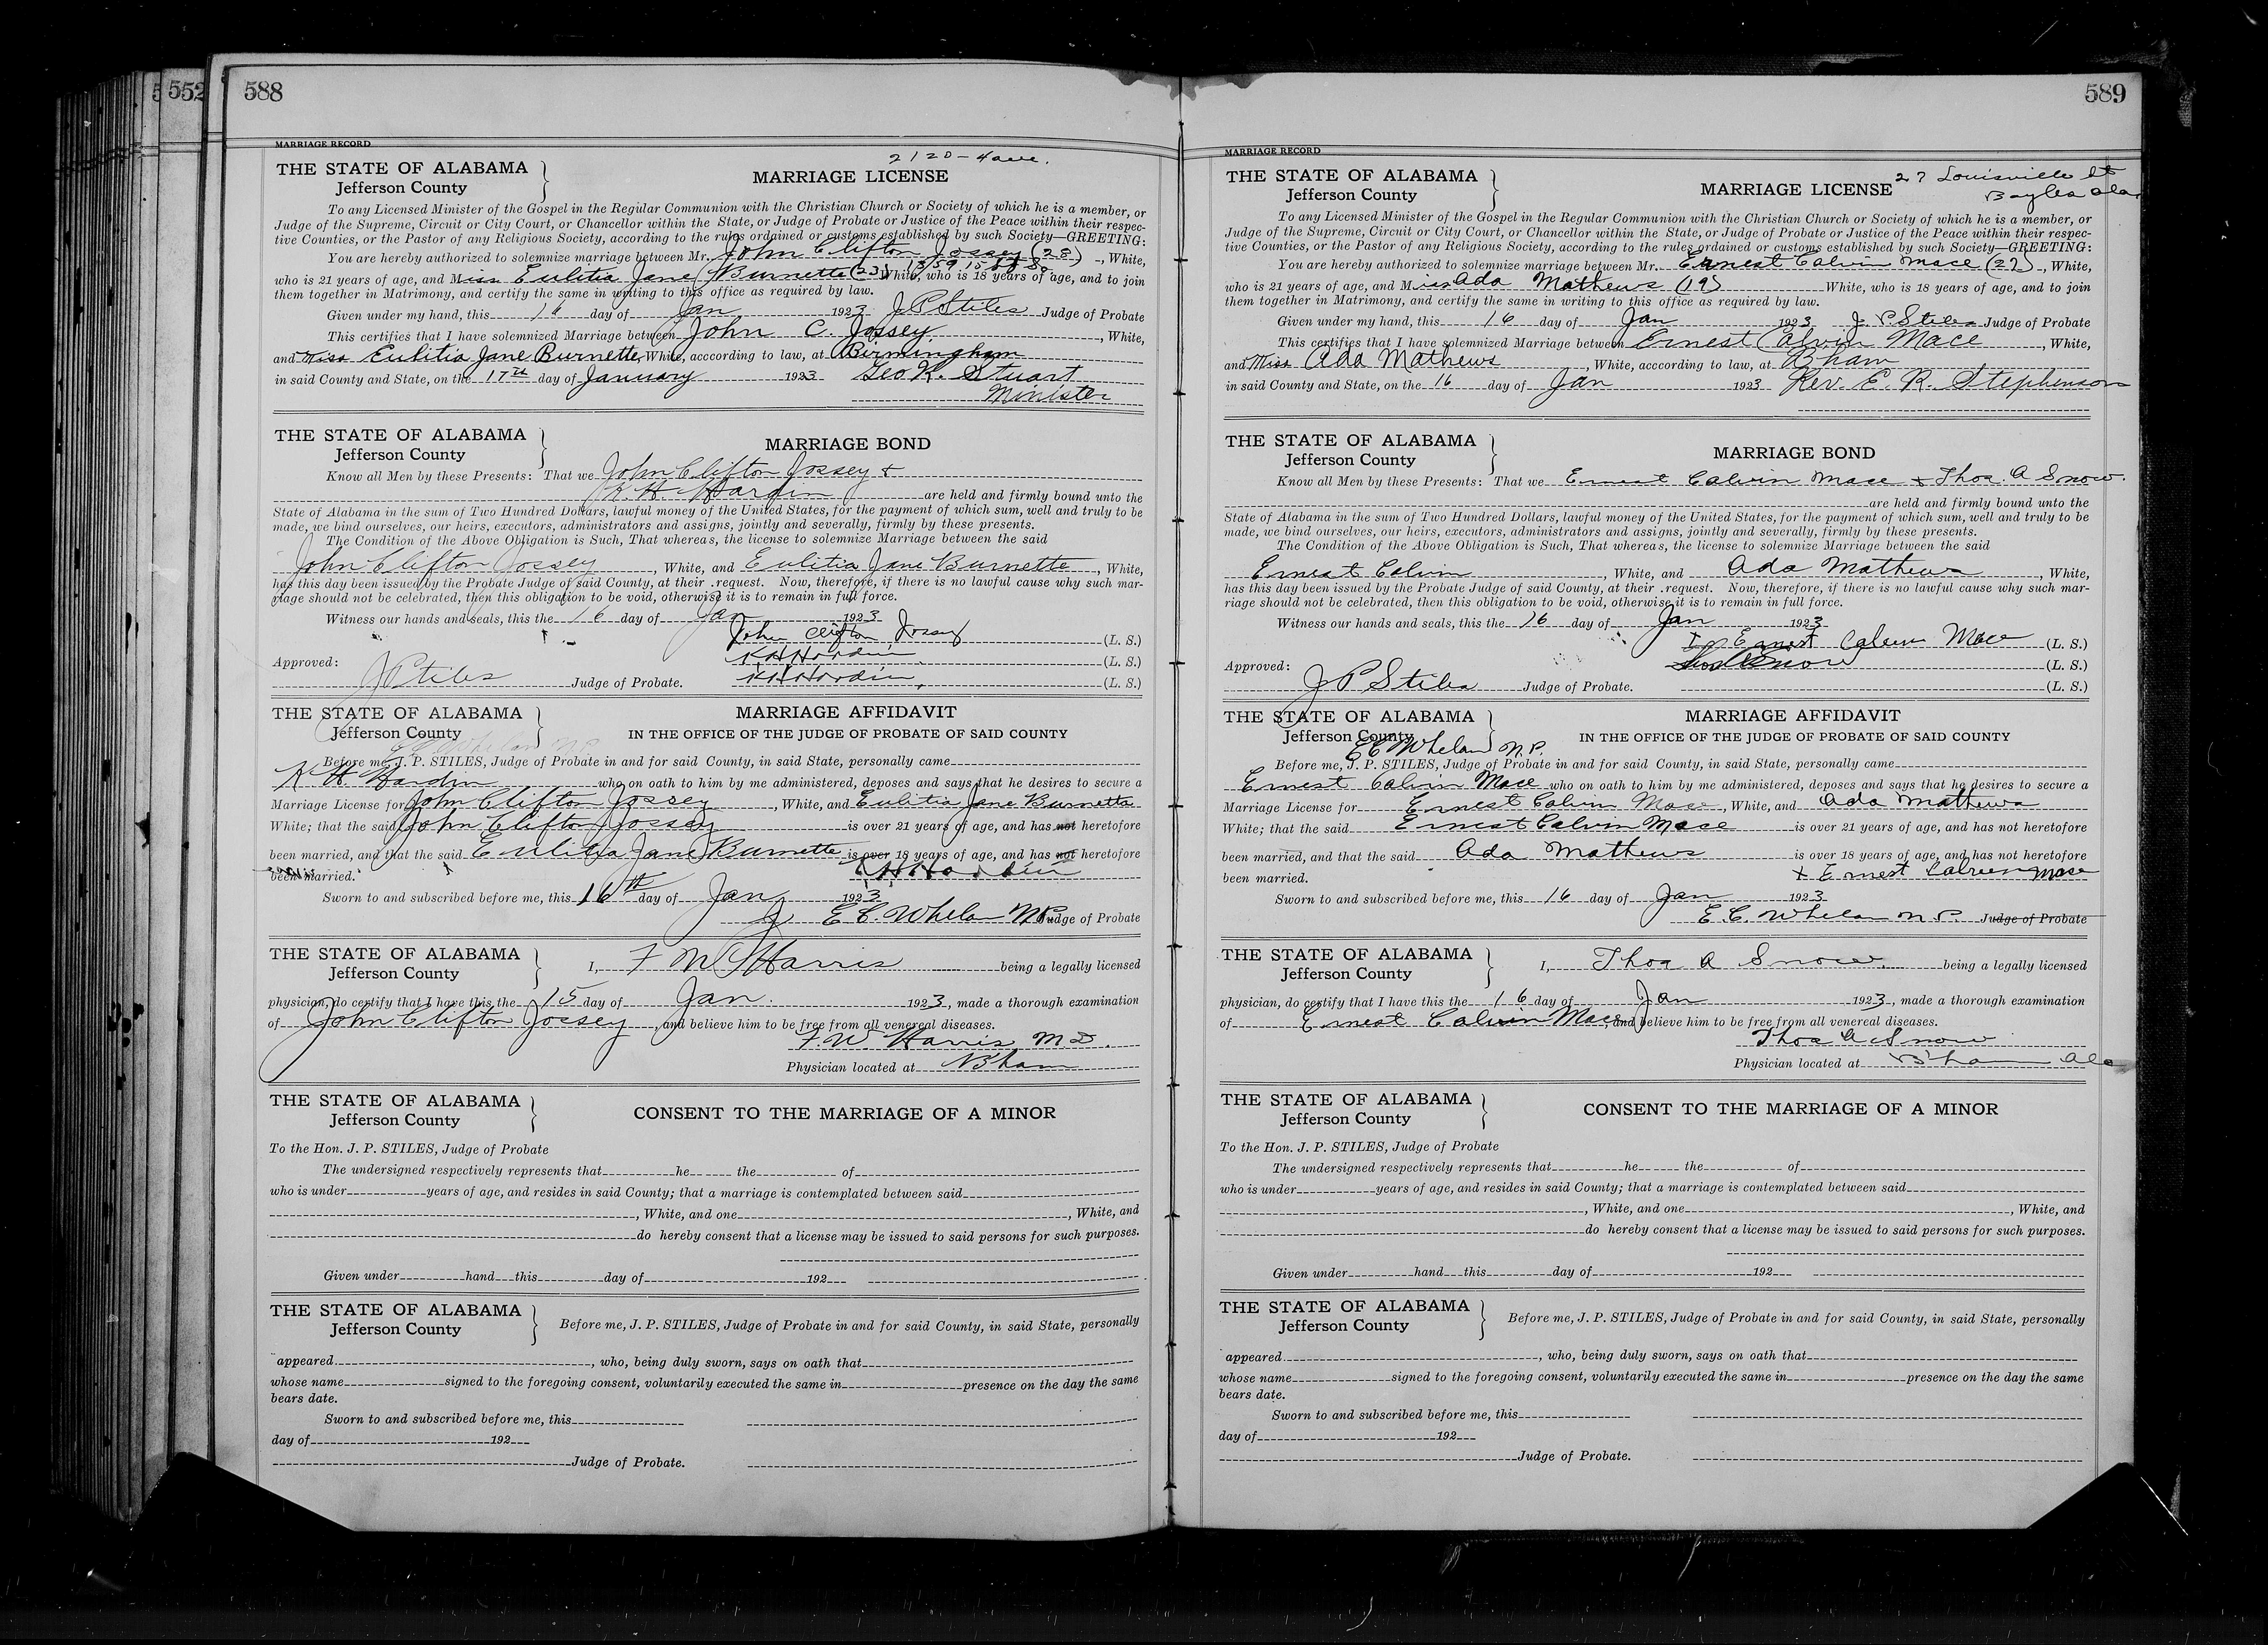 552
588
MARRIAGE RECORD
2120 - 4 ave.
THE STATE OF ALABAMA
Jefferson County
MARRIAGE LICENSE
To any Licensed Minister of the Gospel in the Regular Communion with the Christian Church or Society of which he is a member, or
Judge of the Supreme, Circuit or City Court, or Chancellor within the State, or Judge of Probate or Justice of the Peace within their respec-
tive Counties, or the Pastor of any Religious Society, according to the rules ordained or customs established by such Society—GREETING:
You are hereby authorized to solemnize marriage between Mr. John Clifton Jossey (28), White,
who is 21 years of age, and Miss Eulitia Jane Burnette (23) White, who is 18 years of age, and to join
them together in Matrimony, and certify the same in writing to this office as required by law.
Given under my hand, this 16 day of Jan 1923 J P Stiles Judge of Probate
This certifies that I have solemnized Marriage between John C. Jossey, White,
and Miss Eulitia Jane Burnette, White, acccording to law, at Birmingham
in said County and State, on the 17th day of January 1923 Geo R. Stuart
Minister
THE STATE OF ALABAMA
Jefferson County
MARRIAGE BOND
Know all Men by these Presents: That we John Clifton Jossey &
K. H. Hardin are held and firmly bound unto the
State of Alabama in the sum of Two Hundred Dollars, lawful money of the United States, for the payment of which sum, well and truly to be
made, we bind ourselves, our heirs, executors, administrators and assigns, jointly and severally, firmly by these presents.
The Condition of the Above Obligation is Such, That whereas, the license to solemnize Marriage between the said
John Clifton Jossey, White, and Eulitia Jane Burnette, White,
has this day been issued by the Probate Judge of said County, at their .request. Now, therefore, if there is no lawful cause why such mar-
riage should not be celebrated, then this obligation to be void, otherwise it is to remain in full force.
Witness our hands and seals, this the 16 day of Jan 1923
John Clifton Jossey (L. S.)
Approved: K H Hardin (L. S.)
J P Stiles Judge of Probate. K H Hardin, (L. S.)
THE STATE OF ALABAMA
Jefferson County
MARRIAGE AFFIDAVIT
IN THE OFFICE OF THE JUDGE OF PROBATE OF SAID COUNTY
E C Whelan N.P.
Before me, J. P. STILES, Judge of Probate in and for said County, in said State, personally came
K H Hardin who on oath to him by me administered, deposes and says that he desires to secure a
Marriage License for John Clifton Jossey, White, and Eulitia Jane Burnette
White; that the said John Clifton Jossey is over 21 years of age, and has not heretofore
been married, and that the said Eulitia Jane Burnette is over 18 years of age, and has not heretofore
been married. K H Hardin
Sworn to and subscribed before me, this 16th day of Jan 1923
E. C. Whelan N P Judge of Probate
THE STATE OF ALABAMA
Jefferson County
I, F W Harris being a legally licensed
physician, do certify that I have this the 15 day of Jan. 1923, made a thorough examination
of John Clifton Jossey, and believe him to be free from all venereal diseases.
F. W. Harris M.D.
Physician located at B'ham
THE STATE OF ALABAMA
Jefferson County
CONSENT TO THE MARRIAGE OF A MINOR
To the Hon. J. P. STILES, Judge of Probate
The undersigned respectively represents that he the of
who is under years of age, and resides in said County; that a marriage is contemplated between said
, White, and one , White, and
do hereby consent that a license may be issued to said persons for such purposes.
Given under hand this day of 192
THE STATE OF ALABAMA
Jefferson County
Before me, J. P. STILES, Judge of Probate in and for said County, in said State, personally
appeared , who, being duly sworn, says on oath that
whose name signed to the foregoing consent, voluntarily executed the same in presence on the day the same
bears date.
Sworn to and subscribed before me, this
day of 192
Judge of Probate.
589
MARRIAGE RECORD
27 Louisville St
Bayles Ala
THE STATE OF ALABAMA
Jefferson County
MARRIAGE LICENSE
To any Licensed Minister of the Gospel in the Regular Communion with the Christian Church or Society of which he is a member, or
Judge of the Supreme, Circuit or City Court, or Chancellor within the State, or Judge of Probate or Justice of the Peace within their respec-
tive Counties, or the Pastor of any Religious Society, according to the rules ordained or customs established by such Society—GREETING:
You are hereby authorized to solemnize marriage between Mr. Ernest Calvin Mace (27), White,
who is 21 years of age, and Miss Ada Mathews (19) White, who is 18 years of age, and to join
them together in Matrimony, and certify the same in writing to this office as required by law.
Given under my hand, this 16 day of Jan 1923 J. P. Stiles Judge of Probate
This certifies that I have solemnized Marriage between Ernest Calvin Mace, White,
and Miss Ada Mathews, White, acccording to law, at Bham
in said County and State, on the 16 day of Jan 1923 Rev. E. R. Stephenson
THE STATE OF ALABAMA
Jefferson County
MARRIAGE BOND
Know all Men by these Presents: That we Ernest Calvin Mace & Thos. A Snow.
are held and firmly bound unto the
State of Alabama in the sum of Two Hundred Dollars, lawful money of the United States, for the payment of which sum, well and truly to be
made, we bind ourselves, our heirs, executors, administrators and assigns, jointly and severally, firmly by these presents.
The Condition of the Above Obligation is Such, That whereas, the license to solemnize Marriage between the said
Ernest Calvin, White, and Ada Mathews, White,
has this day been issued by the Probate Judge of said County, at their .request. Now, therefore, if there is no lawful cause why such mar-
riage should not be celebrated, then this obligation to be void, otherwise it is to remain in full force.
Witness our hands and seals, this the 16 day of Jan 1923
Ernest Calvin Mace (L. S.)
Approved: Thos A Snow (L. S.)
J P Stiles Judge of Probate. (L. S.)
THE STATE OF ALABAMA
Jefferson County
MARRIAGE AFFIDAVIT
IN THE OFFICE OF THE JUDGE OF PROBATE OF SAID COUNTY
E C Whelan N.P.
Before me, J. P. STILES, Judge of Probate in and for said County, in said State, personally came
Ernest Calvin Mace who on oath to him by me administered, deposes and says that he desires to secure a
Marriage License for Ernest Calvin Mace, White, and Ada Mathews
White; that the said Ernest Calvin Mace is over 21 years of age, and has not heretofore
been married, and that the said Ada Mathews is over 18 years of age, and has not heretofore
been married. x Ernest Calvin Mace
Sworn to and subscribed before me, this 16 day of Jan 1923
E. C. Whelan N.P. Judge of Probate
THE STATE OF ALABAMA
Jefferson County
I, Thos A Snow, being a legally licensed
physician, do certify that I have this the 16 day of Jan 1923, made a thorough examination
of Ernest Calvin Mace, and believe him to be free from all venereal diseases.
Thos A Snow
Physician located at B'ham Ala
THE STATE OF ALABAMA
Jefferson County
CONSENT TO THE MARRIAGE OF A MINOR
To the Hon. J. P. STILES, Judge of Probate
The undersigned respectively represents that he the of
who is under years of age, and resides in said County; that a marriage is contemplated between said
, White, and one , White, and
do hereby consent that a license may be issued to said persons for such purposes.
Given under hand this day of 192
THE STATE OF ALABAMA
Jefferson County
Before me, J. P. STILES, Judge of Probate in and for said County, in said State, personally
appeared , who, being duly sworn, says on oath that
whose name signed to the foregoing consent, voluntarily executed the same in presence on the day the same
bears date.
Sworn to and subscribed before me, this
day of 192
Judge of Probate.